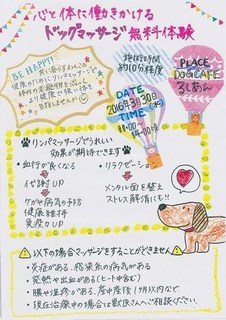 心と体に働きかける
ドッグマッサージ無料体験
BE HAPPY!
健康のためにリンパマッサージで
より健康で強い体を
目指しませんか
施術時間
約10分程度
PLACE
DOGCAFE
DATE
2016年3月30日(水)
TIME
11:00〜
14:00
リンパマッサージでうれしい
効果が期待できます
・血行が良くなる
代謝UP
ケガや病気の予防
健康維持
免疫力UP
・リラクゼーション
メンタル面を整え
ストレス解消にも!!
以下の場合マッサージをすることができません
・炎症がある、感染系の病気がある
・発熱や出血がある(ヒート中含む)
・現在治療中の場合は獣医さんへご相談ください。